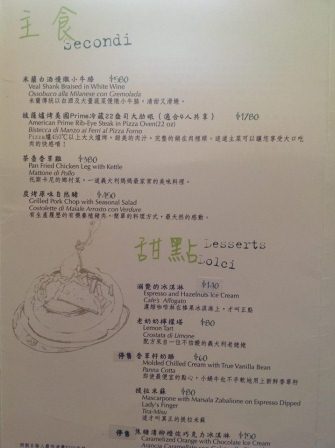 主食
Secondi
米蘭白酒慢燉小牛膝 $580
Veal Shank Braised in White Wine
Ossobuco alla Milanese con Cremolada
米蘭傳統以白酒及大量蔬菜慢燉小牛膝，清甜又滑嫩。
披薩爐烤美國Prime冷藏22盎司大肋眼（適合4人共享） $1780
American Prime Rib-Eye Steak in Pizza Oven(22 oz)
Bistecca di Manzo ai Ferri al Pizza Forno
茶壺香草雞 $380
Pan Fried Chicken Leg with Kettle
Mattone di Pollo
托斯卡尼的鄉村菜，一道義大利媽媽最家常的美味料理。
炭烤原味自然豬 $490
Grilled Pork Chop with Seasonal Salad
Costolette di Maiale Arrosto con Verdure
有生產履歷的有機養殖豬肉，簡單的料理方式，最天然的感動。
甜點 Desserts
Dolci
溺斃的冰淇淋 $130
Espresso and Hazelnuts Ice Cream
Cafe's Affogato
老奶奶檸檬塔 $80
Lemon Tart
Crostata di Limone
停售 香草籽奶酪 $60
Molded Chilled Cream with True Vanilla Bean
Panna Cotta
提拉米蘇 $80
Mascarpone with Marsala Zabalione on Espresso Dipped
Lady's Finger
Tira-Misu
停售 $150
Caramelized Orange with Chocolate Ice Cream